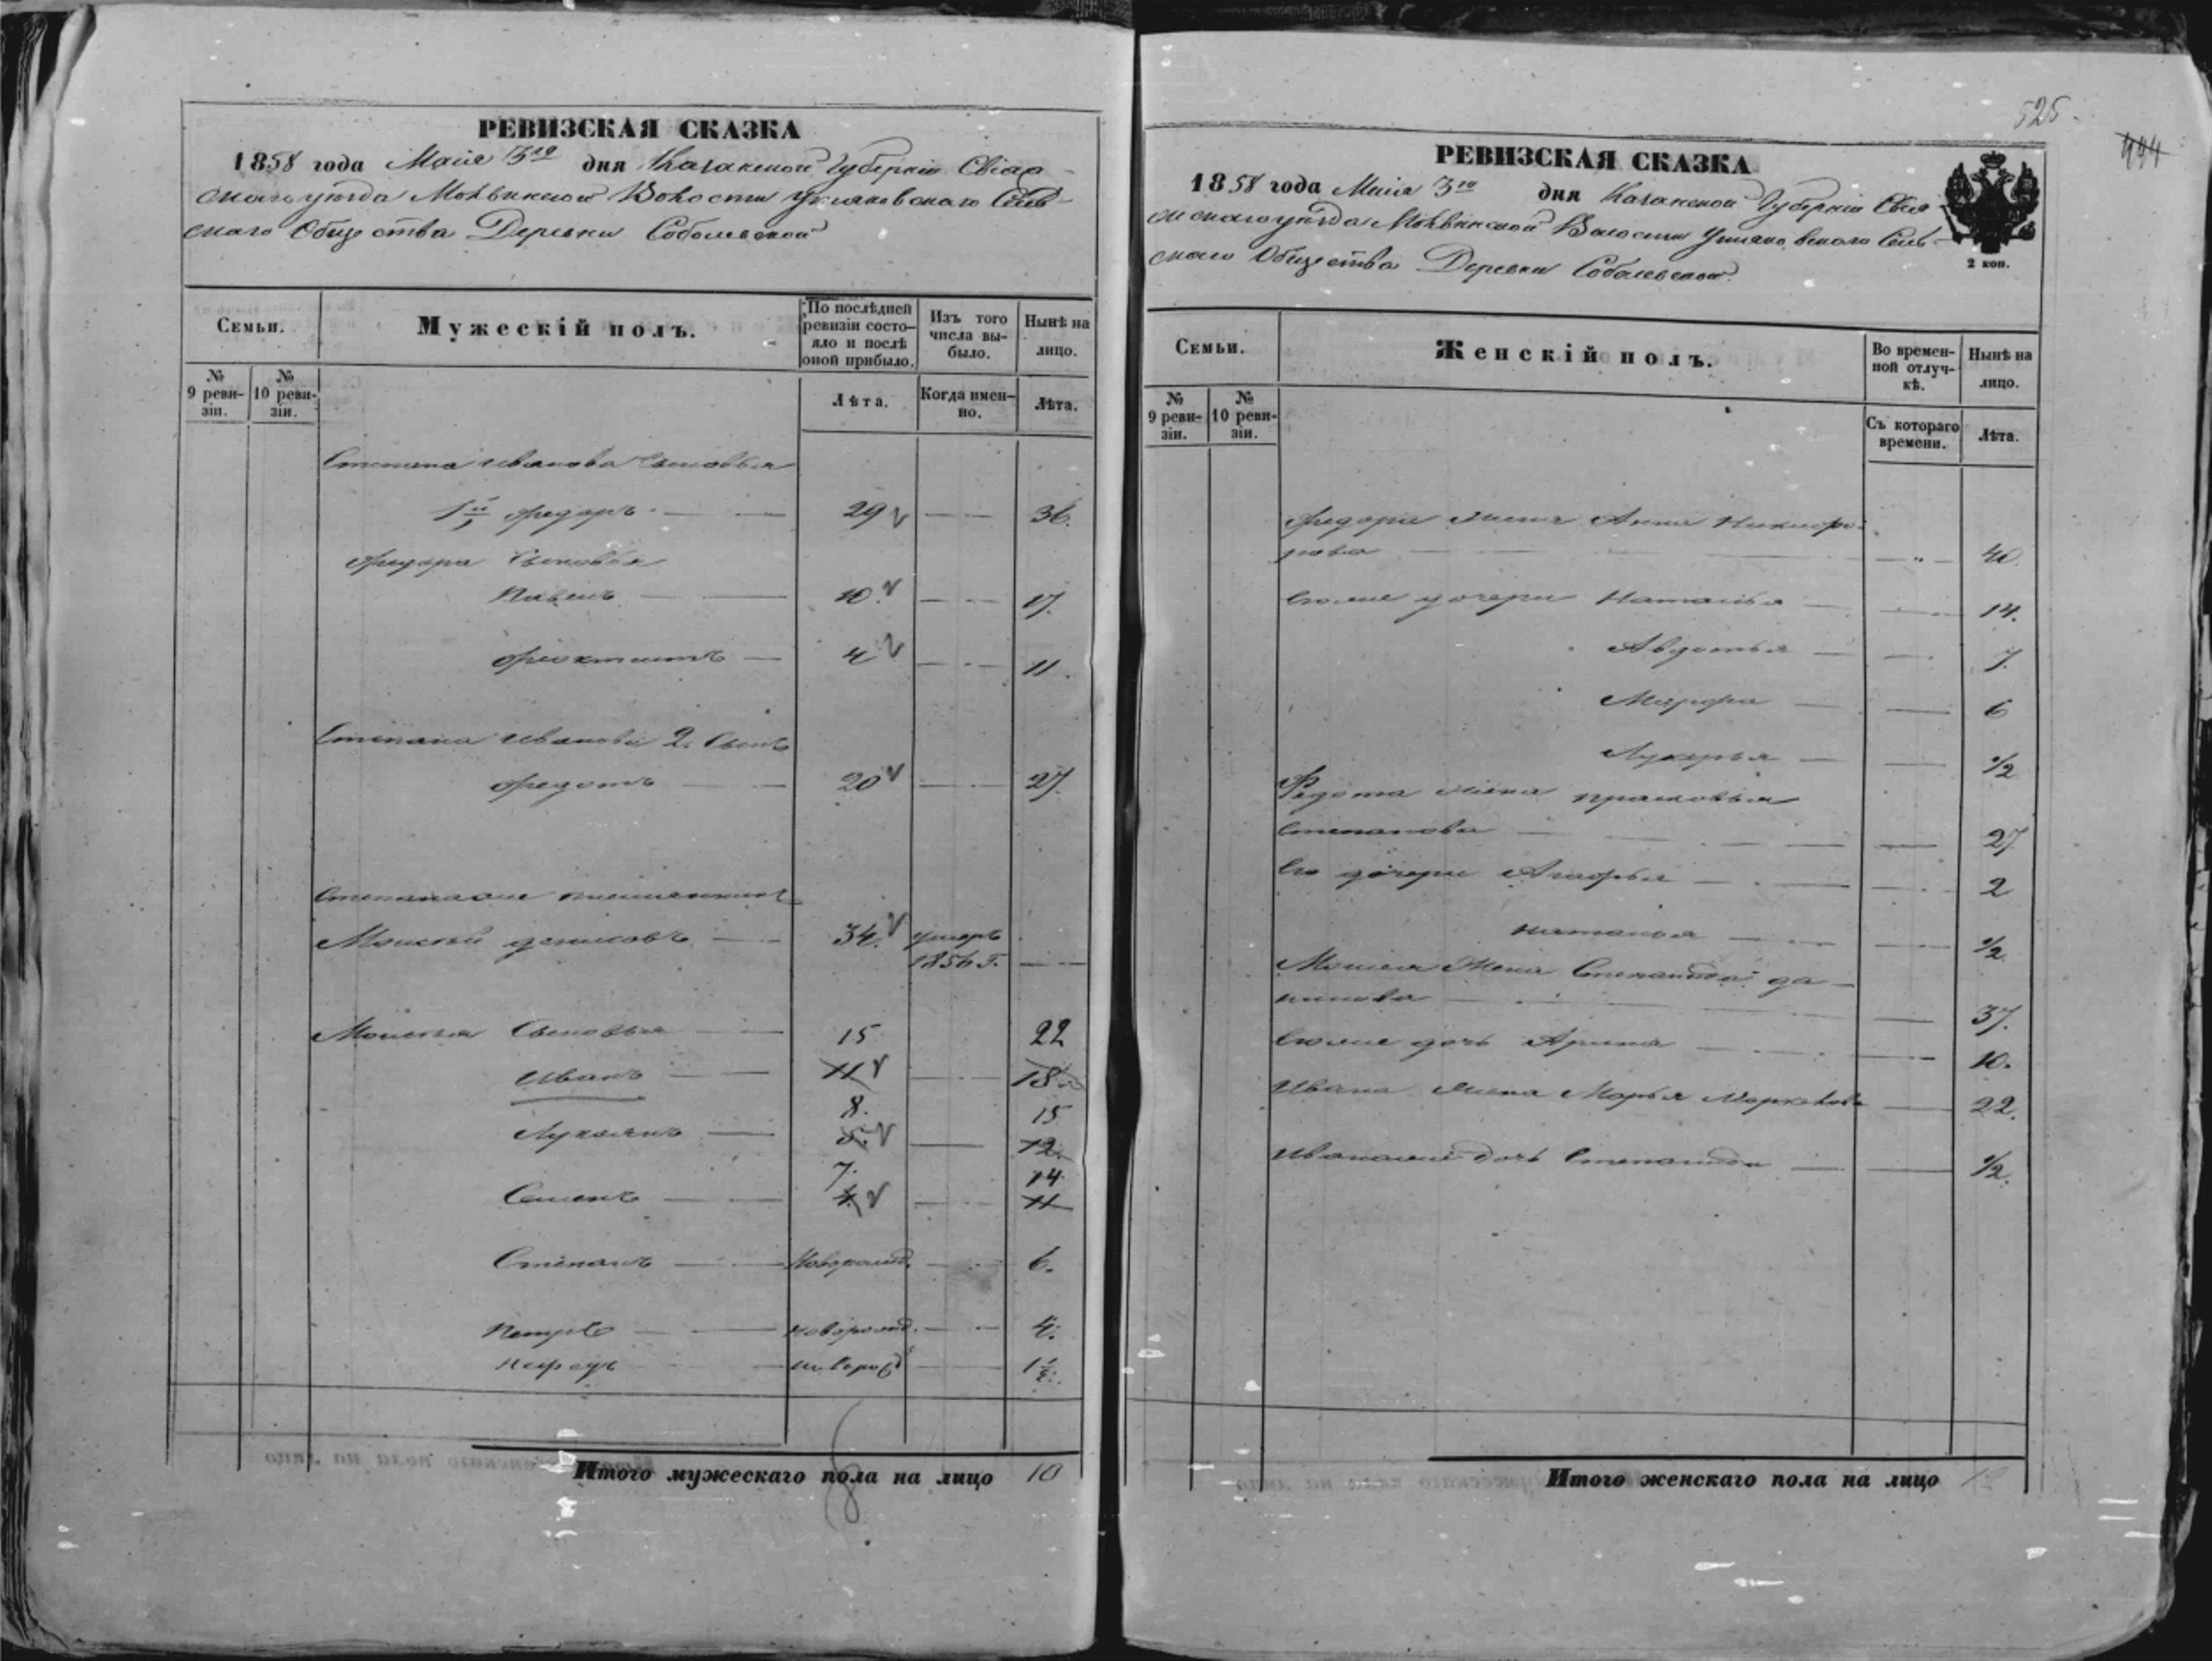 РЕВИЗСКАЯ СКАЗКА
1858 года Маія 3го дня Казанской Губерніи Свіяж-
скаго уѣзда Волости Сель-
скаго Общества Деревни Соболевской
Семьи.
Мужескій полъ.
По послѣдней ревизіи состо-яло и послѣ оной прибыло.
Изъ того числа вы-было.
Нынѣ на лицо.
№ 9 реви-зіи.
№ 10 реви-зіи.
Лѣта.
Когда имен-но.
Лѣта.
Степана Иванова Сыновья
1й Федоръ 29 36.
Федора Сыновья
Павелъ 10. 17.
Феоктистъ 4 11.
Степана Иванова 2. Сынъ
Федотъ 20 27.
Степановы племянники
Моисей Денисовъ 34. умеръ
1856 г.
Моисея Сыновья 15 22
Иванъ 11 18
8. 15
Лукьянъ 5. 12.
7. 14
Семенъ 4. 11
Степанъ Новорожд. 6.
Петръ новорожд. 4.
новорожд 1½.
Итого мужескаго пола на лицо 10
525.
444
РЕВИЗСКАЯ СКАЗКА
1858 года Маія 3го дня Казанской Губерніи Свія-
жскаго уѣзда Волости Сель-
скаго Общества Деревни Соболевской.
2 коп.
Семьи.
Женскій полъ.
Во времен-ной отлуч-кѣ.
Нынѣ на лицо.
№ 9 реви-зіи.
№ 10 реви-зіи.
Съ котораго времени.
Лѣта.
Федора жена Анна Никифо-
рова 40.
Его же дочери Наталья 14.
Авдотья 7.
Марфа 6
Лукерья ½
Федота жена Прасковья
Степанова 27
Его дочери Агафья 2
Наталья ½
Моисея Жена Степанида Да-
нилова 37.
Его же дочь Арина 10.
Ивана жена Марья Маркелова 22.
Иванова дочь Степанида ½.
Итого женскаго пола на лицо 12